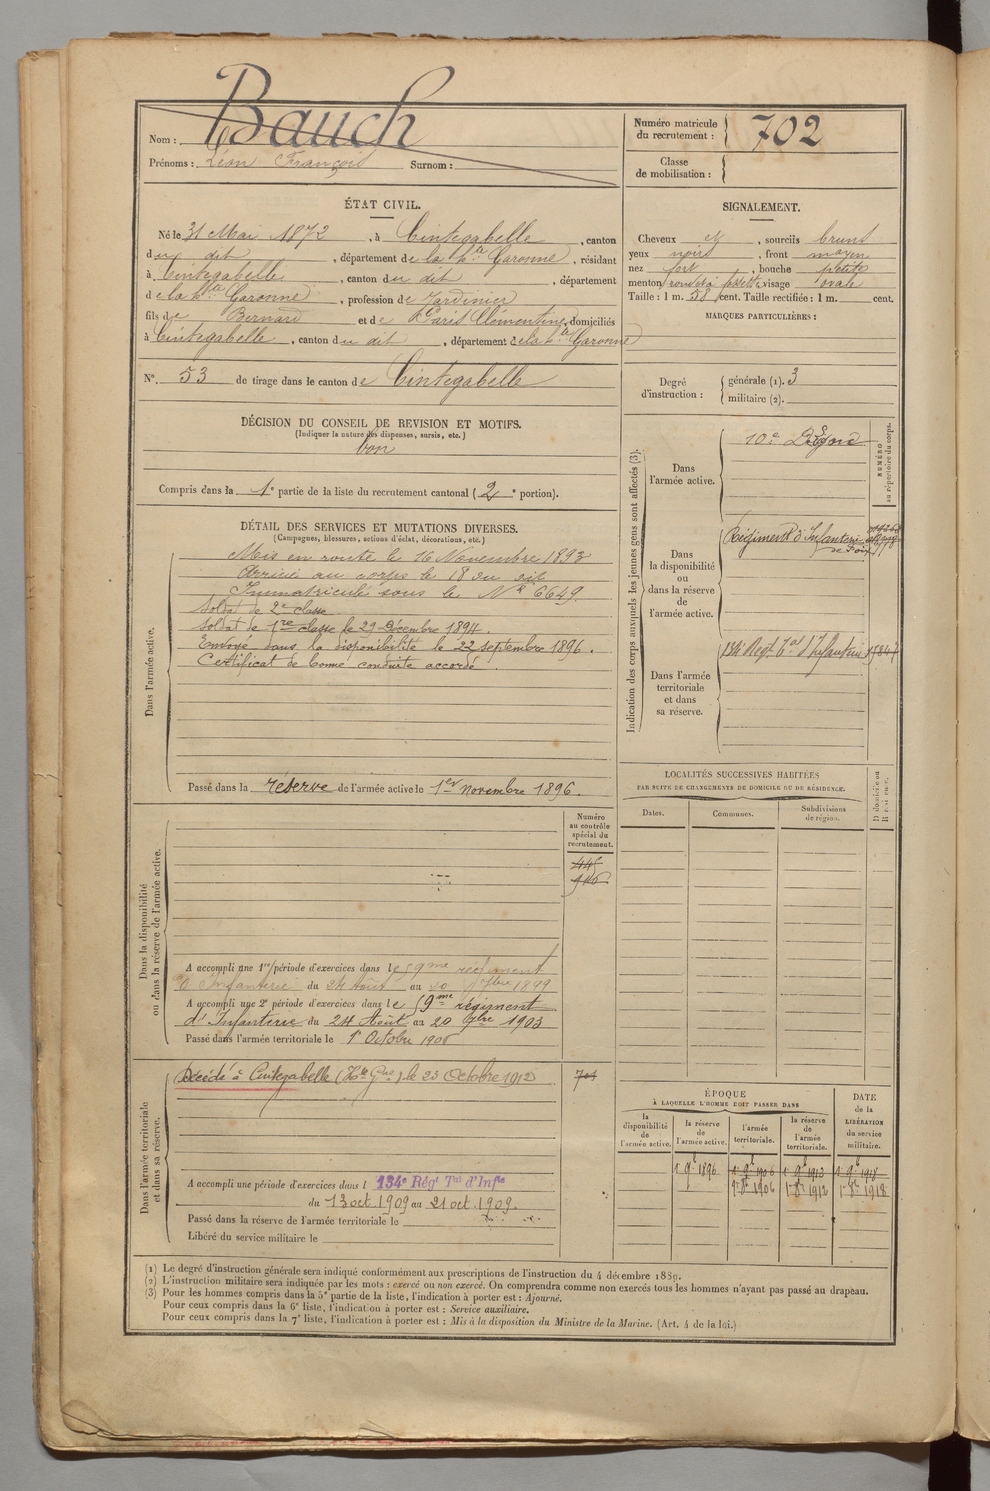 Nom : Bauch
Prénoms : Léon François Surnom :
Numéro matricule du recrutement : 702
Classe de mobilisation :
ÉTAT CIVIL.
Né le 31 Mai 1872, à Cintegabelle, canton
du dit, département de la Hte Garonne, résidant
à Cintegabelle, canton du dit, département
de la Hte Garonne, profession de Jardinier
fils de Bernard et de Paris Clémentine, domiciliés
à Cintegabelle, canton du dit, département de la Hte Garonne
N° 53 de tirage dans le canton de Cintegabelle
DÉCISION DU CONSEIL DE REVISION ET MOTIFS.
(Indiquer la nature des dispenses, sursis, etc.)
bon
Compris dans la 1e partie de la liste du recrutement cantonal (2e portion).
SIGNALEMENT.
Cheveux et, sourcils bruns
yeux noirs, front moyen
nez fort, bouche petite
menton rond à fossette visage ovale
Taille : 1 m. 58 cent. Taille rectifiée : 1 m. cent.
MARQUES PARTICULIÈRES :
Degré d'instruction : générale (1). 3
militaire (2).
DÉTAIL DES SERVICES ET MUTATIONS DIVERSES.
(Campagnes, blessures, actions d'éclat, décorations, etc.)
Dans l'armée active.
Mis en route le 16 Novembre 1893
Arrivé au corps le 18 du dit
Immatriculé sous le N° 6649.
Soldat de 2e classe
Soldat de 1re classe le 29 Décembre 1894.
Envoyé dans la disponibilité le 22 septembre 1896.
Certificat de bonne conduite accordé
Passé dans la réserve de l'armée active le 1er novembre 1896.
Indication des corps auxquels les jeunes gens sont affectés (3).
NUMÉRO au répertoire du corps.
Dans l'armée active.
10e Dragons
Dans la disponibilité ou dans la réserve de l'armée active.
Régiment d'Infanterie de Foix
Dans l'armée territoriale et dans sa réserve.
134 Régt Tal d'Infanterie
LOCALITÉS SUCCESSIVES HABITÉES
PAR SUITE DE CHANGEMENTS DE DOMICILE OU DE RÉSIDENCE.
Dates. Communes. Subdivisions de région. D domicile ou R résidence.
Dans la disponibilité ou dans la réserve de l'armée active.
Numéro au contrôle spécial du recrutement.
A accompli une 1re période d'exercices dans le 59me régiment
d'Infanterie du 24 Août au 20 7bre 1899
A accompli une 2e période d'exercices dans le 59me régiment
d'Infanterie du 24 Août au 20 7bre 1903
Passé dans l'armée territoriale le 1er Octobre 1906
Dans l'armée territoriale et dans sa réserve.
Décédé à Cintegabelle (Hte Gne) le 23 Octobre 1912
A accompli une période d'exercices dans l 134e Régt Tal d'Infie
du 13 oct. 1909 au 21 oct. 1909.
Passé dans la réserve de l'armée territoriale le
Libéré du service militaire le
ÉPOQUE
À LAQUELLE L'HOMME DOIT PASSER DANS
la disponibilité de l'armée active. la réserve de l'armée active. l'armée territoriale. la réserve de l'armée territoriale.
DATE de la LIBÉRATION du service militaire.
1er 9b 1896 1er 9b 1906 1er 9b 1912 1er 9b 1918
1er 8b 1906 1er 8b 1912 1er 8b 1918
(1) Le degré d'instruction générale sera indiqué conformément aux prescriptions de l'instruction du 4 décembre 1889.
(2) L'instruction militaire sera indiquée par les mots : exercé ou non exercé. On comprendra comme non exercés tous les hommes n'ayant pas passé au drapeau.
(3) Pour les hommes compris dans la 5e partie de la liste, l'indication à porter est : Ajourné.
Pour ceux compris dans la 6e liste, l'indication à porter est : Service auxiliaire.
Pour ceux compris dans la 7e liste, l'indication à porter est : Mis à la disposition du Ministre de la Marine. (Art. 4 de la loi.)